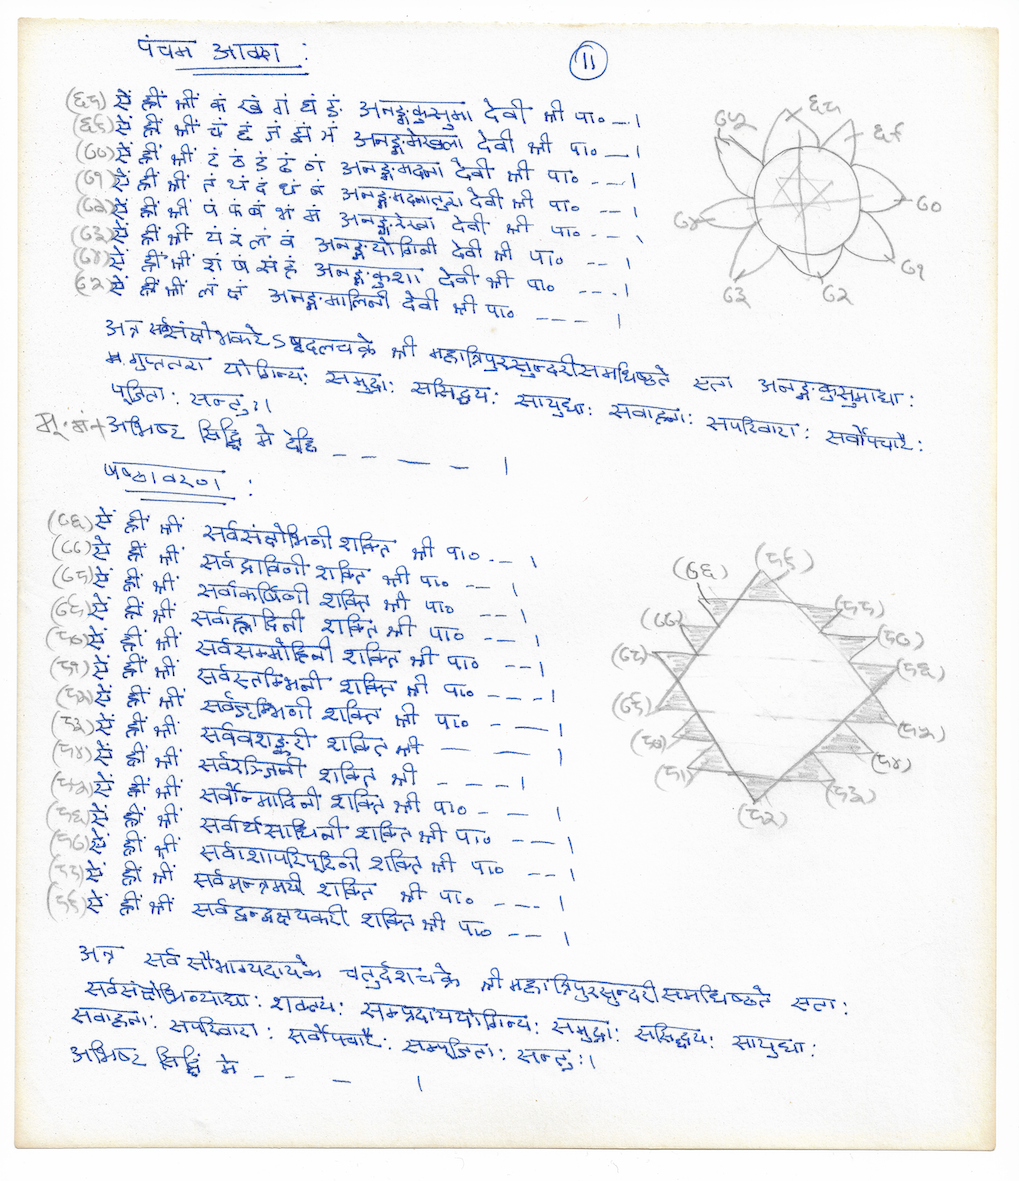 पंचम आवरण :
११
(६८) ऐं ह्रीं श्रीं कं खं गं घं ङं अनङ्गकुसुमा देवी श्री पा० — ।
(६९) ऐं ह्रीं श्रीं चं छं जं झं ञं अनङ्गमेखला देवी श्री पा० — ।
(७०) ऐं ह्रीं श्रीं टं ठं डं ढं णं अनङ्गमदना देवी श्री पा० --- ।
(७१) ऐं ह्रीं श्रीं तं थं दं धं नं अनङ्गमदनातुरा देवी श्री पा० -- ।
(७२) ऐं ह्रीं श्रीं पं फं बं भं मं अनङ्गरेखा देवी श्री पा० -- ।
(७३) ऐं ह्रीं श्रीं यं रं लं वं अनङ्गयोगिनी देवी श्री पा० -- ।
(७४) ऐं ह्रीं श्रीं शं षं सं हं अनङ्गकुशा देवी श्री पा० --- ।
ऐं ह्रीं श्रीं लं क्षं अनङ्गमालिनी देवी श्री पा० --- ।
अत्र सर्वसंक्षोभकरेऽष्टदलचक्रे श्री महात्रिपुरसुन्दरीसमधिष्ठते एता अनङ्गकुसुमाद्या :
गुप्ततरा योगिन्य: समुद्रा: ससिद्धय: सायुधा: सवाहना: सपरिवारा: सर्वोपचारै:
पूजिता: सन्तु:।
मू. मं + अभिष्ट सिद्धिं मे देहि — — — — ।
षष्ठावरण :
(७६) ऐं ह्रीं श्रीं सर्वसंक्षोभिणी शक्ति श्री पा० -- ।
(७७) ऐं ह्रीं श्रीं सर्वद्राविणी शक्ति श्री पा० -- ।
(७८) ऐं ह्रीं श्रीं सर्वाकर्षिणी शक्ति श्री पा० -- ।
(७९) ऐं ह्रीं श्रीं सर्वाह्लादिनी शक्ति श्री पा० -- ।
(८०) ऐं ह्रीं श्रीं सर्वसम्मोहिनी शक्ति श्री पा० -- ।
(८१) ऐं ह्रीं श्रीं सर्वस्तम्भिनी शक्ति श्री पा० --- ।
(८२) ऐं ह्रीं श्रीं सर्वजृम्भिणी शक्ति श्री पा० — ।
(८३) ऐं ह्रीं श्रीं सर्ववशङ्करी शक्ति श्री — — ।
(८४) ऐं ह्रीं श्रीं सर्वरञ्जिनी शक्ति श्री - - - ।
(८५) ऐं ह्रीं श्रीं सर्वोन्मादिनी शक्ति श्री पा० - -- ।
(८६) ऐं ह्रीं श्रीं सर्वार्थसाधिनी शक्ति श्री पा० -- ।
(८७) ऐं ह्रीं श्रीं सर्वाशापरिपूरिणी शक्ति श्री पा० -- ।
(८८) ऐं ह्रीं श्रीं सर्वमन्त्रमयी शक्ति श्री पा० - --- ।
(८९) ऐं ह्रीं श्रीं सर्वद्वन्द्वक्षयकरी शक्ति श्री पा० -- ।
अत्र सर्व सौभाग्यदायके चतुर्दशचक्रे श्री महात्रिपुरसुन्दरीसमधिष्ठते एता:
सर्वसंक्षोभिण्याद्या: शक्तय: सम्प्रदाययोगिन्य: समुद्रा: ससिद्धय: सायुधा:
सवाहना: सपरिवारा: सर्वोपचारै: सम्पूजिता: सन्तु:।
अभिष्ट सिद्धिं मे — — — ।
६८
६९
७०
७१
७२
७३
७४
७५
(८९)
(७६)
(८८)
(७७)
(८७)
(७८)
(८६)
(७९)
(८०)
(८४)
(८१)
(८३)
(८२)